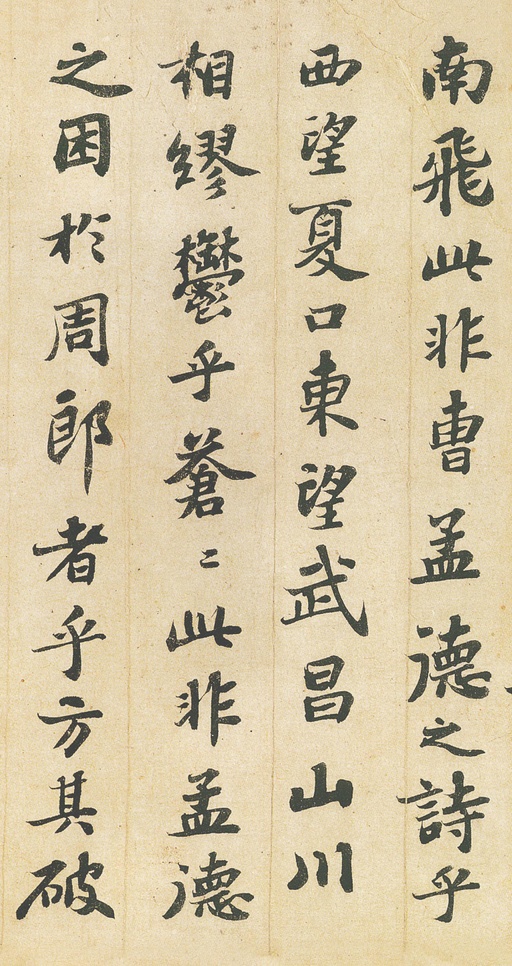 南飛此非曹孟德之詩乎
西望夏口東望武昌山川
相繆鬱乎蒼〻此非孟德
之困於周郎者乎方其破